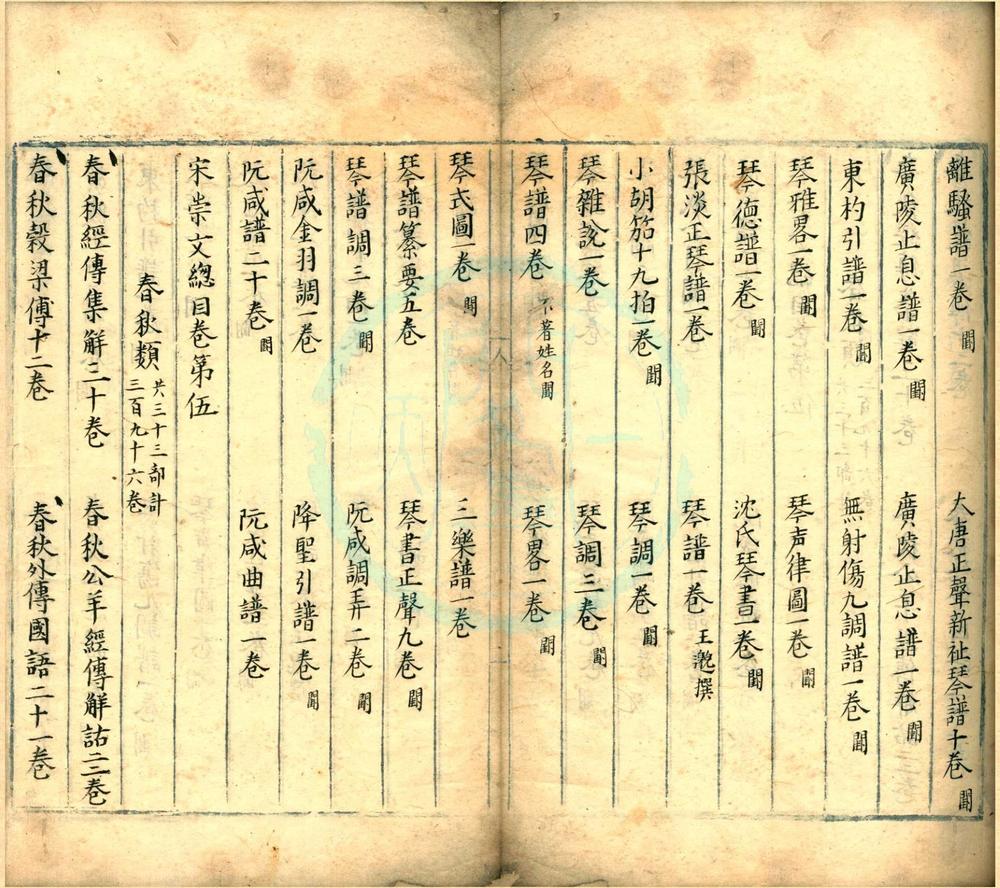 離騷譜一卷 闕 大唐正聲新祉琴譜十卷 闕
廣陵止息譜一卷 闕 廣陵止息譜一卷 闕
東杓引譜一卷 闕 無射傷九調譜一卷 闕
琴雅畧一卷 闕 琴声律圖一卷 闕
琴德譜一卷 闕 沈氏琴書一卷 闕
張淡正琴譜一卷 琴譜一卷 王邈撰
小胡笳十九拍一卷 闕 琴調一卷 闕
琴雜說一卷 琴調三卷 闕
琴譜四卷 不著姓名闕 琴畧一卷 闕
琴式圖一卷 闕 三樂譜一卷
琴譜纂要五卷 琴書正聲九卷 闕
琴譜調三卷 闕 阮咸調弄二卷 闕
阮咸金羽調一卷 降聖引譜一卷 闕
阮咸譜二十卷 闕 阮咸曲譜一卷
宋崇文總目卷第伍
春秋類 共三十三部計三百九十六卷
春秋經傳集解三十卷 春秋公羊經傳解詁十二卷
春秋穀梁傳十二卷 春秋外傳國語二十一卷